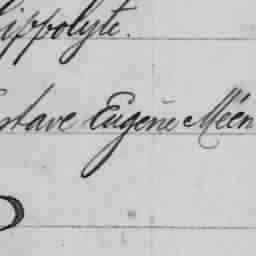 ippolyte.
stave Eugène Méen